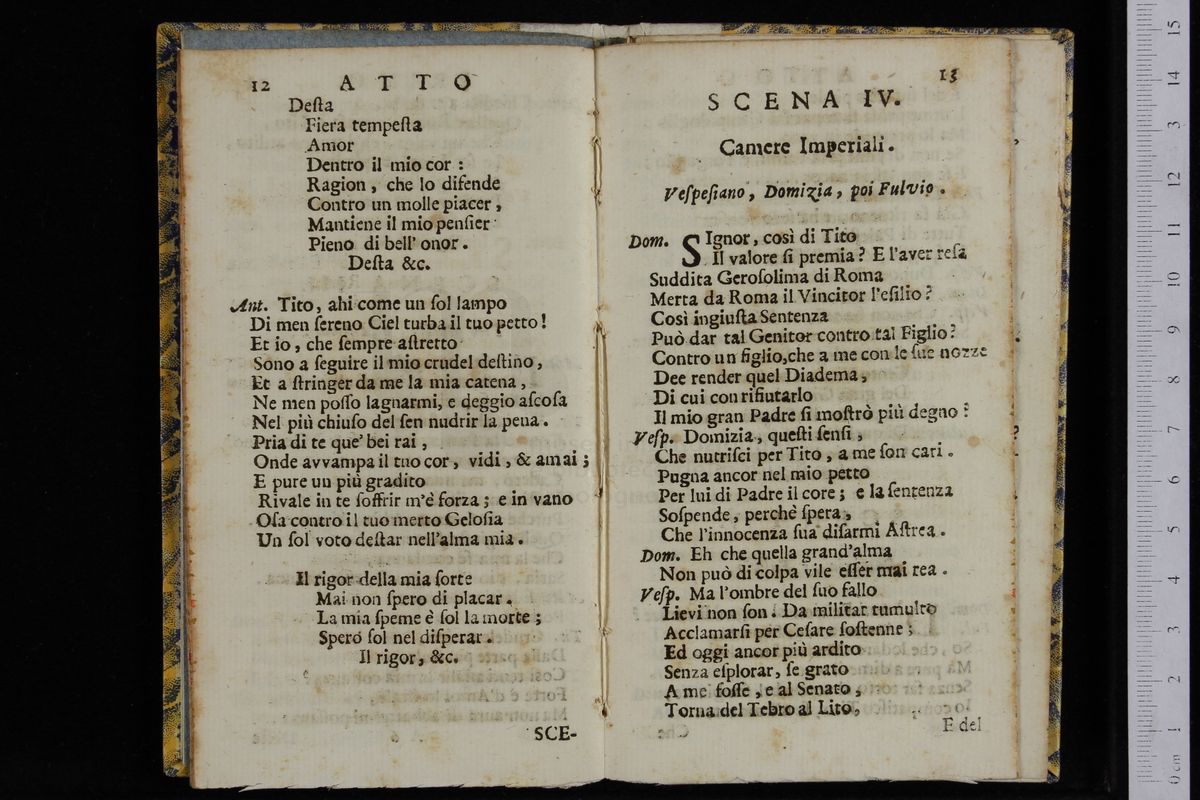 12 ATTO
Deſta
Fiera tempeſta
Amor
Dentro il mio cor :
Ragion , che lo difende
Contro un molle piacer ,
Mantiene il mio penſier
Pieno di bell' onor .
Deſta &c.
Ant. Tito, ahi come un ſol lampo
Di men ſereno Ciel turba il tuo petto !
Et io , che ſempre aſtretto
Sono a ſeguire il mio crudel deſtino ,
Et a ſtringer da me la mia catena ,
Ne men poſſo lagnarmi, e deggio aſcoſa
Nel più chiuſo del ſen nudrir la pena .
Pria di te que' bei rai ,
Onde avvampa il tuo cor , vidi , & amai ;
E pure un più gradito
Rivale in te ſoffrir m'è forza ; e in vano
Oſa contro il tuo merto Geloſia
Un ſol voto deſtar nell'alma mia .
Il rigor della mia ſorte
Mai non ſpero di placar .
La mia ſpeme è ſol la morte ;
Spero ſol nel diſperar .
Il rigor, &c.
SCE-
13
SCENA IV.
Camere Imperiali .
Veſpeſiano , Domizia , poi Fulvio .
Dom. SIgnor, così di Tito
Il valore ſi premia ? E l'aver reſa
Suddita Geroſolima di Roma
Merta da Roma il Vincitor l'eſilio ?
Così ingiuſta Sentenza
Può dar tal Genitor contro tal Figlio ?
Contro un figlio,che a me con le ſue nozze
Dee render quel Diadema ,
Di cui con rifiutarlo
Il mio gran Padre ſi moſtrò più degno ?
Veſp. Domizia , queſti ſenſi ,
Che nutriſci per Tito , a me ſon cari .
Pugna ancor nel mio petto
Per lui di Padre il core ; e la ſentenza
Soſpende , perchè ſpera ,
Che l'innocenza ſua diſarmi Aſtrea .
Dom. Eh che quella grand'alma
Non può di colpa vile eſſer mai rea .
Veſp. Ma l'ombre del ſuo fallo
Lievi non ſon . Da militar tumulto
Acclamarſi per Ceſare ſoſtenne ;
Ed oggi ancor più ardito
Senza eſplorar , ſe grato
A me foſſe , e al Senato ,
Torna del Tebro al Lito ,
E del
0 cm 1 2 3 4 5 6 7 8 9 10 11 12 13 14 15